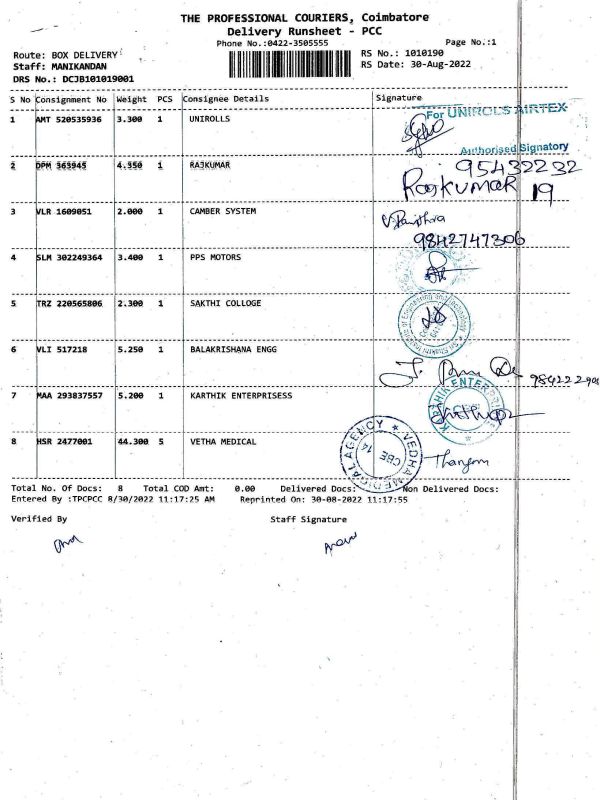 THE PROFESSIONAL COURIERS, Coimbatore
Delivery Runsheet - PCC
Phone No.:0422-3505555
Page No.:1
Route: BOX DELIVERY
Staff: MANIKANDAN
DRS No.: DCJB101019001
RS No.: 1010190
RS Date: 30-Aug-2022
S No Consignment No Weight PCS Consignee Details Signature
1 AMT 520535936 3.300 1 UNIROLLS
For UNIROLS AIRTEX
Authorised Signatory
2 DPM 363945 4.350 1 RAJKUMAR
95432232
Rajkumar 19
3 VLR 1609051 2.000 1 CAMBER SYSTEM
9842747306
4 SLM 302249364 3.400 1 PPS MOTORS
5 TRZ 220565806 2.300 1 SAKTHI COLLOGE
6 VLI 517218 5.250 1 BALAKRISHANA ENGG
7 MAA 293837557 5.200 1 KARTHIK ENTERPRISESS
KARTHIK ENTERPRISES
8 HSR 2477001 44.300 5 VETHA MEDICAL
VEDHA MEDICAL AGENCY
CBE 14
Total No. Of Docs: 8 Total COD Amt: 0.00 Delivered Docs: Non Delivered Docs:
Entered By :TPCPCC 8/30/2022 11:17:25 AM Reprinted On: 30-08-2022 11:17:55
Verified By Staff Signature